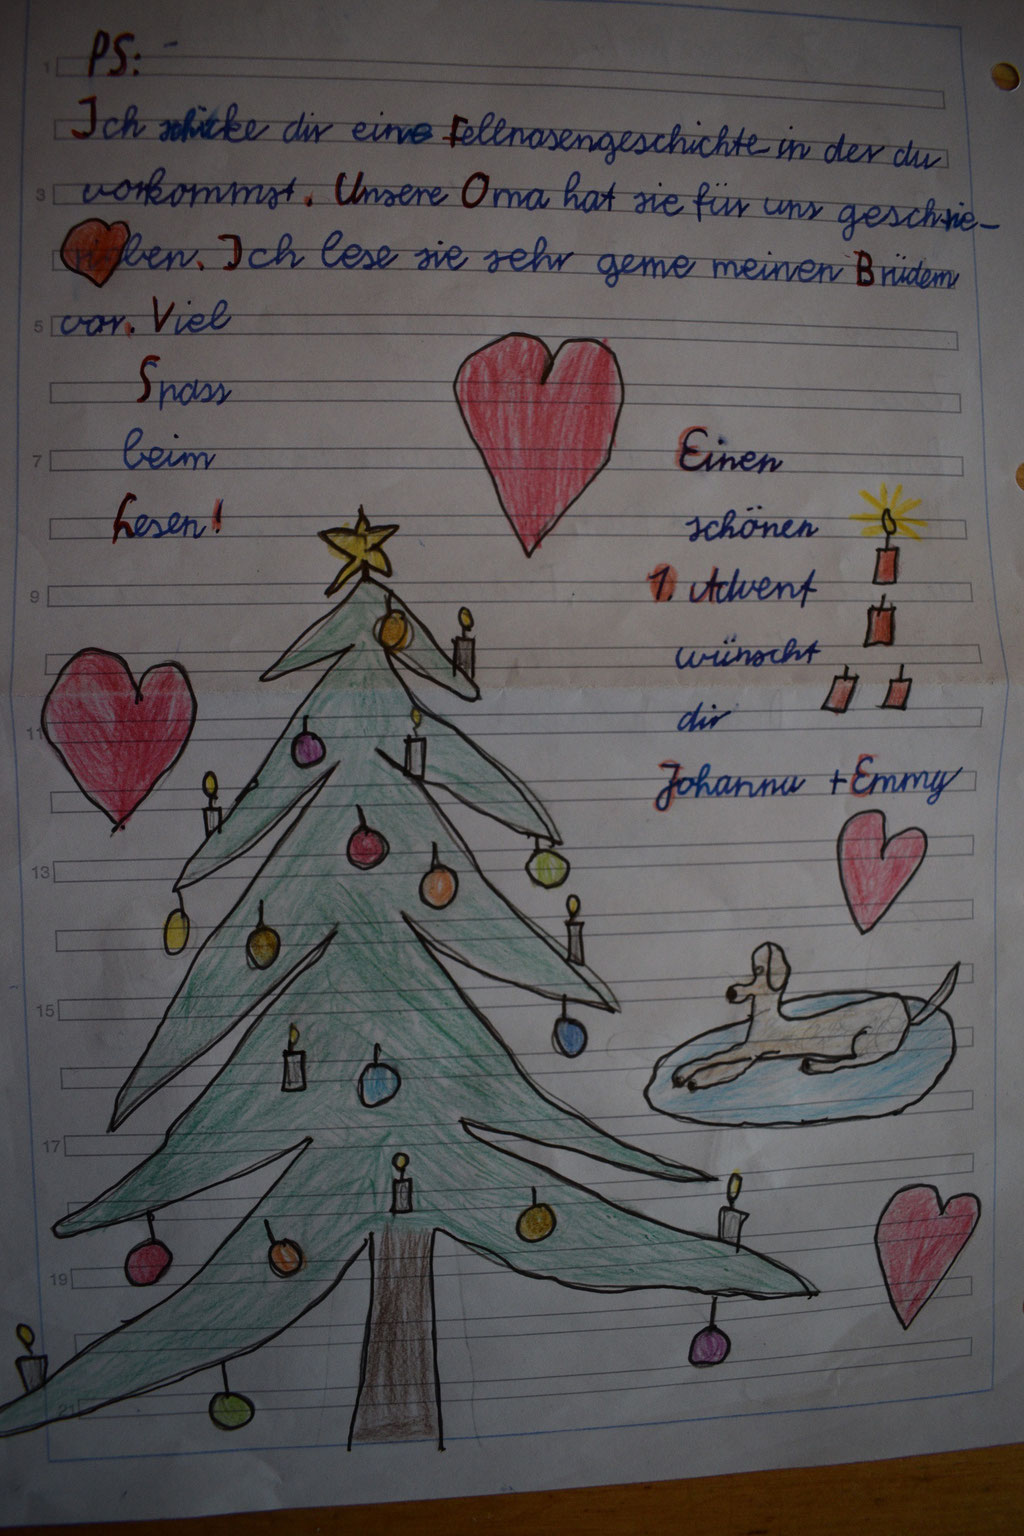 PS:
Ich schicke dir eine Fellnasengeschichte in der du
vorkommst. Unsere Oma hat sie für uns geschrie-
ben. Ich lese sie sehr gerne meinen Brüdern
vor. Viel
Spass
beim
Lesen!
Einen
schönen
1. Advent
wünscht
dir
Johanna + Emmy
1
3
5
7
9
11
13
15
17
19
21